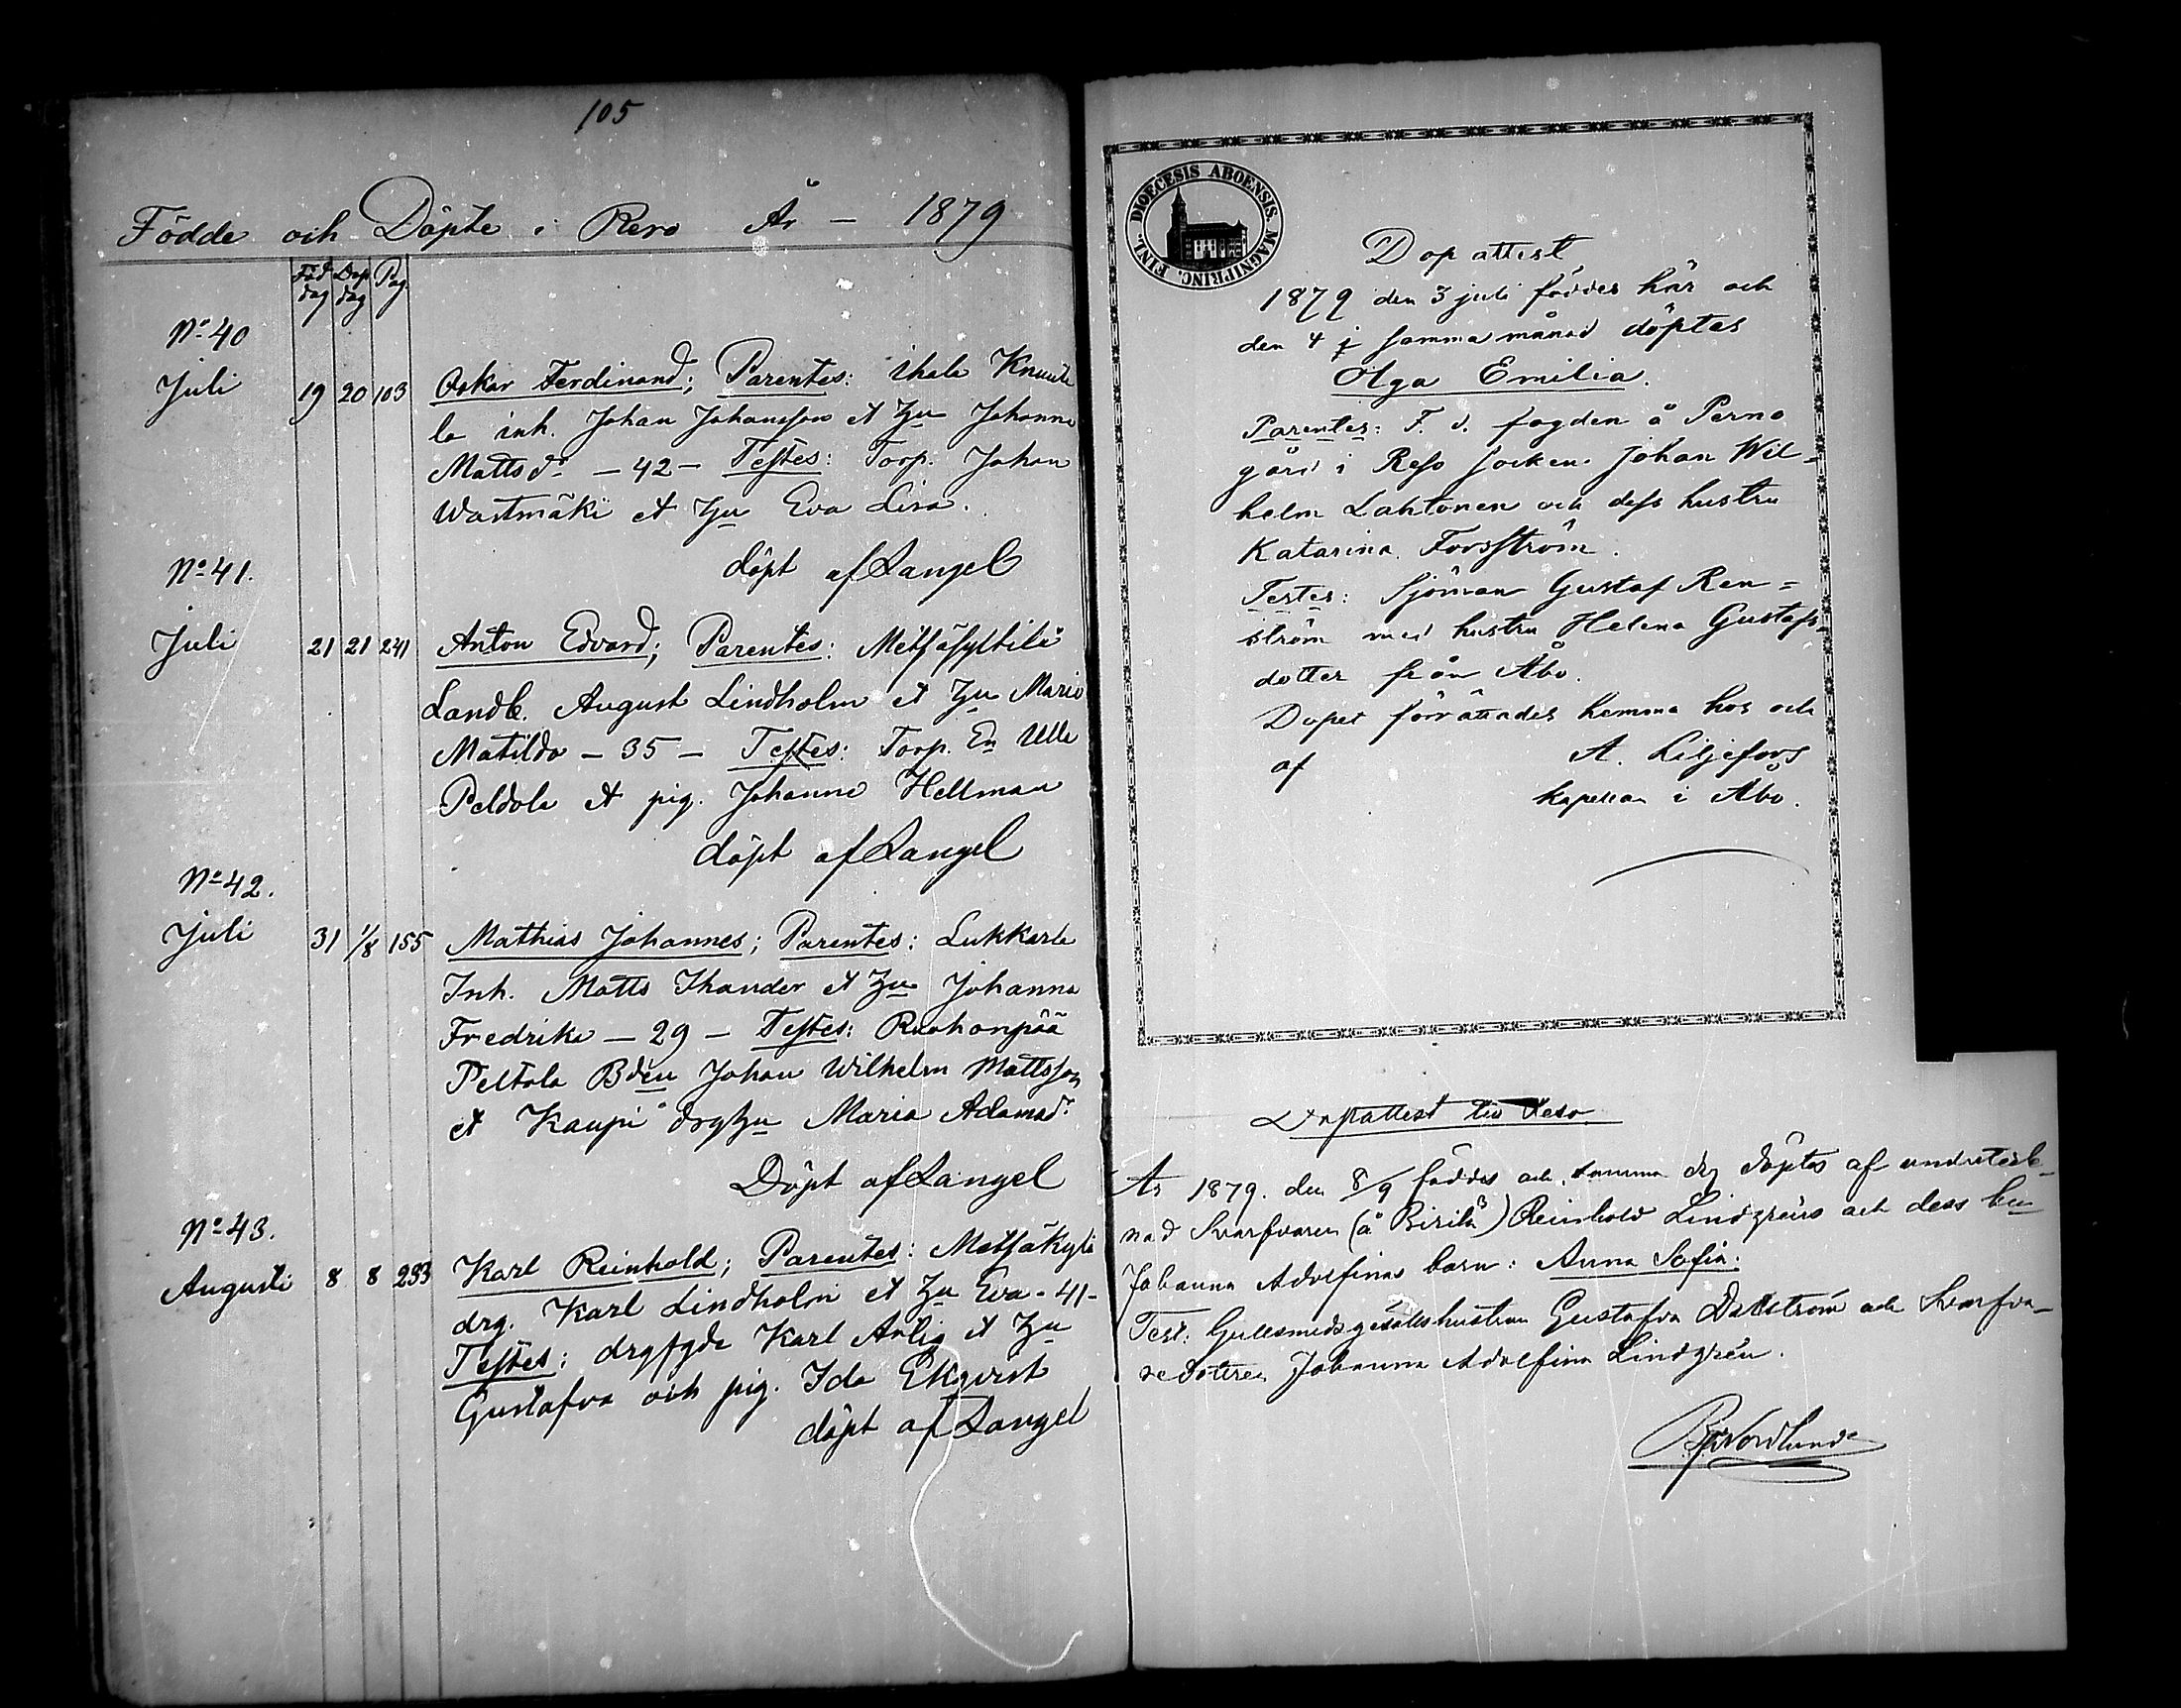 105
Födde och Döpte i Reso År - 1879
Föd dag Dop dag Pag
No 40
Juli 19 20 103 Oskar Ferdinand; Parentes: Ihala Knuuti
la inh. Johan Johansson et hu Johanna
Mattsdr - 42 - Testes: Torp. Johan
Wartmäki et hu Eva Lisa.
döpt af Langel
No 41.
Juli 21 21 241 Anton Edvard; Parentes: Metsäkyltilä
Landb. August Lindholm et hu Maria
Matilda - 35 - Testes: Torp. En Ulla
Peldola et pig. Johanna Hellman
döpt af Langel
No 42.
Juli 31 1/8 155 Mathias Johannes; Parentes: Lukkarla
Inh. Matts Ihander et hu Johanna
Fredrika - 29 - Testes: Ruohonpää
Peltola Bden Johan Wilhelm Mattsson
et Kaupi drghu Maria Adamsdr
Döpt af Langel
No 43.
Augusti 8 8 233 Karl Reinhold; Parentes: Metsäkylä
drg. Karl Lindholm et hu Eva - 41 -
Testes: drgfgde Karl Anlig et hu
Gustafva och pig. Ida Ekqvist
döpt af Langel
DIOECESIS ABOENSIS. MAGNI PRINC. FINL.
Dopattest
1879 den 3 juli föddes här och
den 4 i samma månad döptes
Olga Emilia.
Parentes: F. d. fogden å Perno
gård i Reso socken Johan Wil=
helm Lahtonen och dess hustru
Katarina Forsström.
Testes: Sjöman Gustaf Ren=
ström med hustru Helena Gustafs=
dotter från Åbo.
Dopet förrättades hemma hos och
af A. Liljefors
kapellan i Åbo.
Dopattest till Reso
År 1879. den 8/9 föddes och samma dag döptes af undeteck-
nad Svarfvaren (å Birila) Reinhold Lindgréns och dess hu
Johanna Adolfinas barn: Anna Sofia.
Test: Gullsmedsgesällshustrun Gustafva Dallström och Svarfva-
redottren Johanna Adolfina Lindgrén.
Nordlund